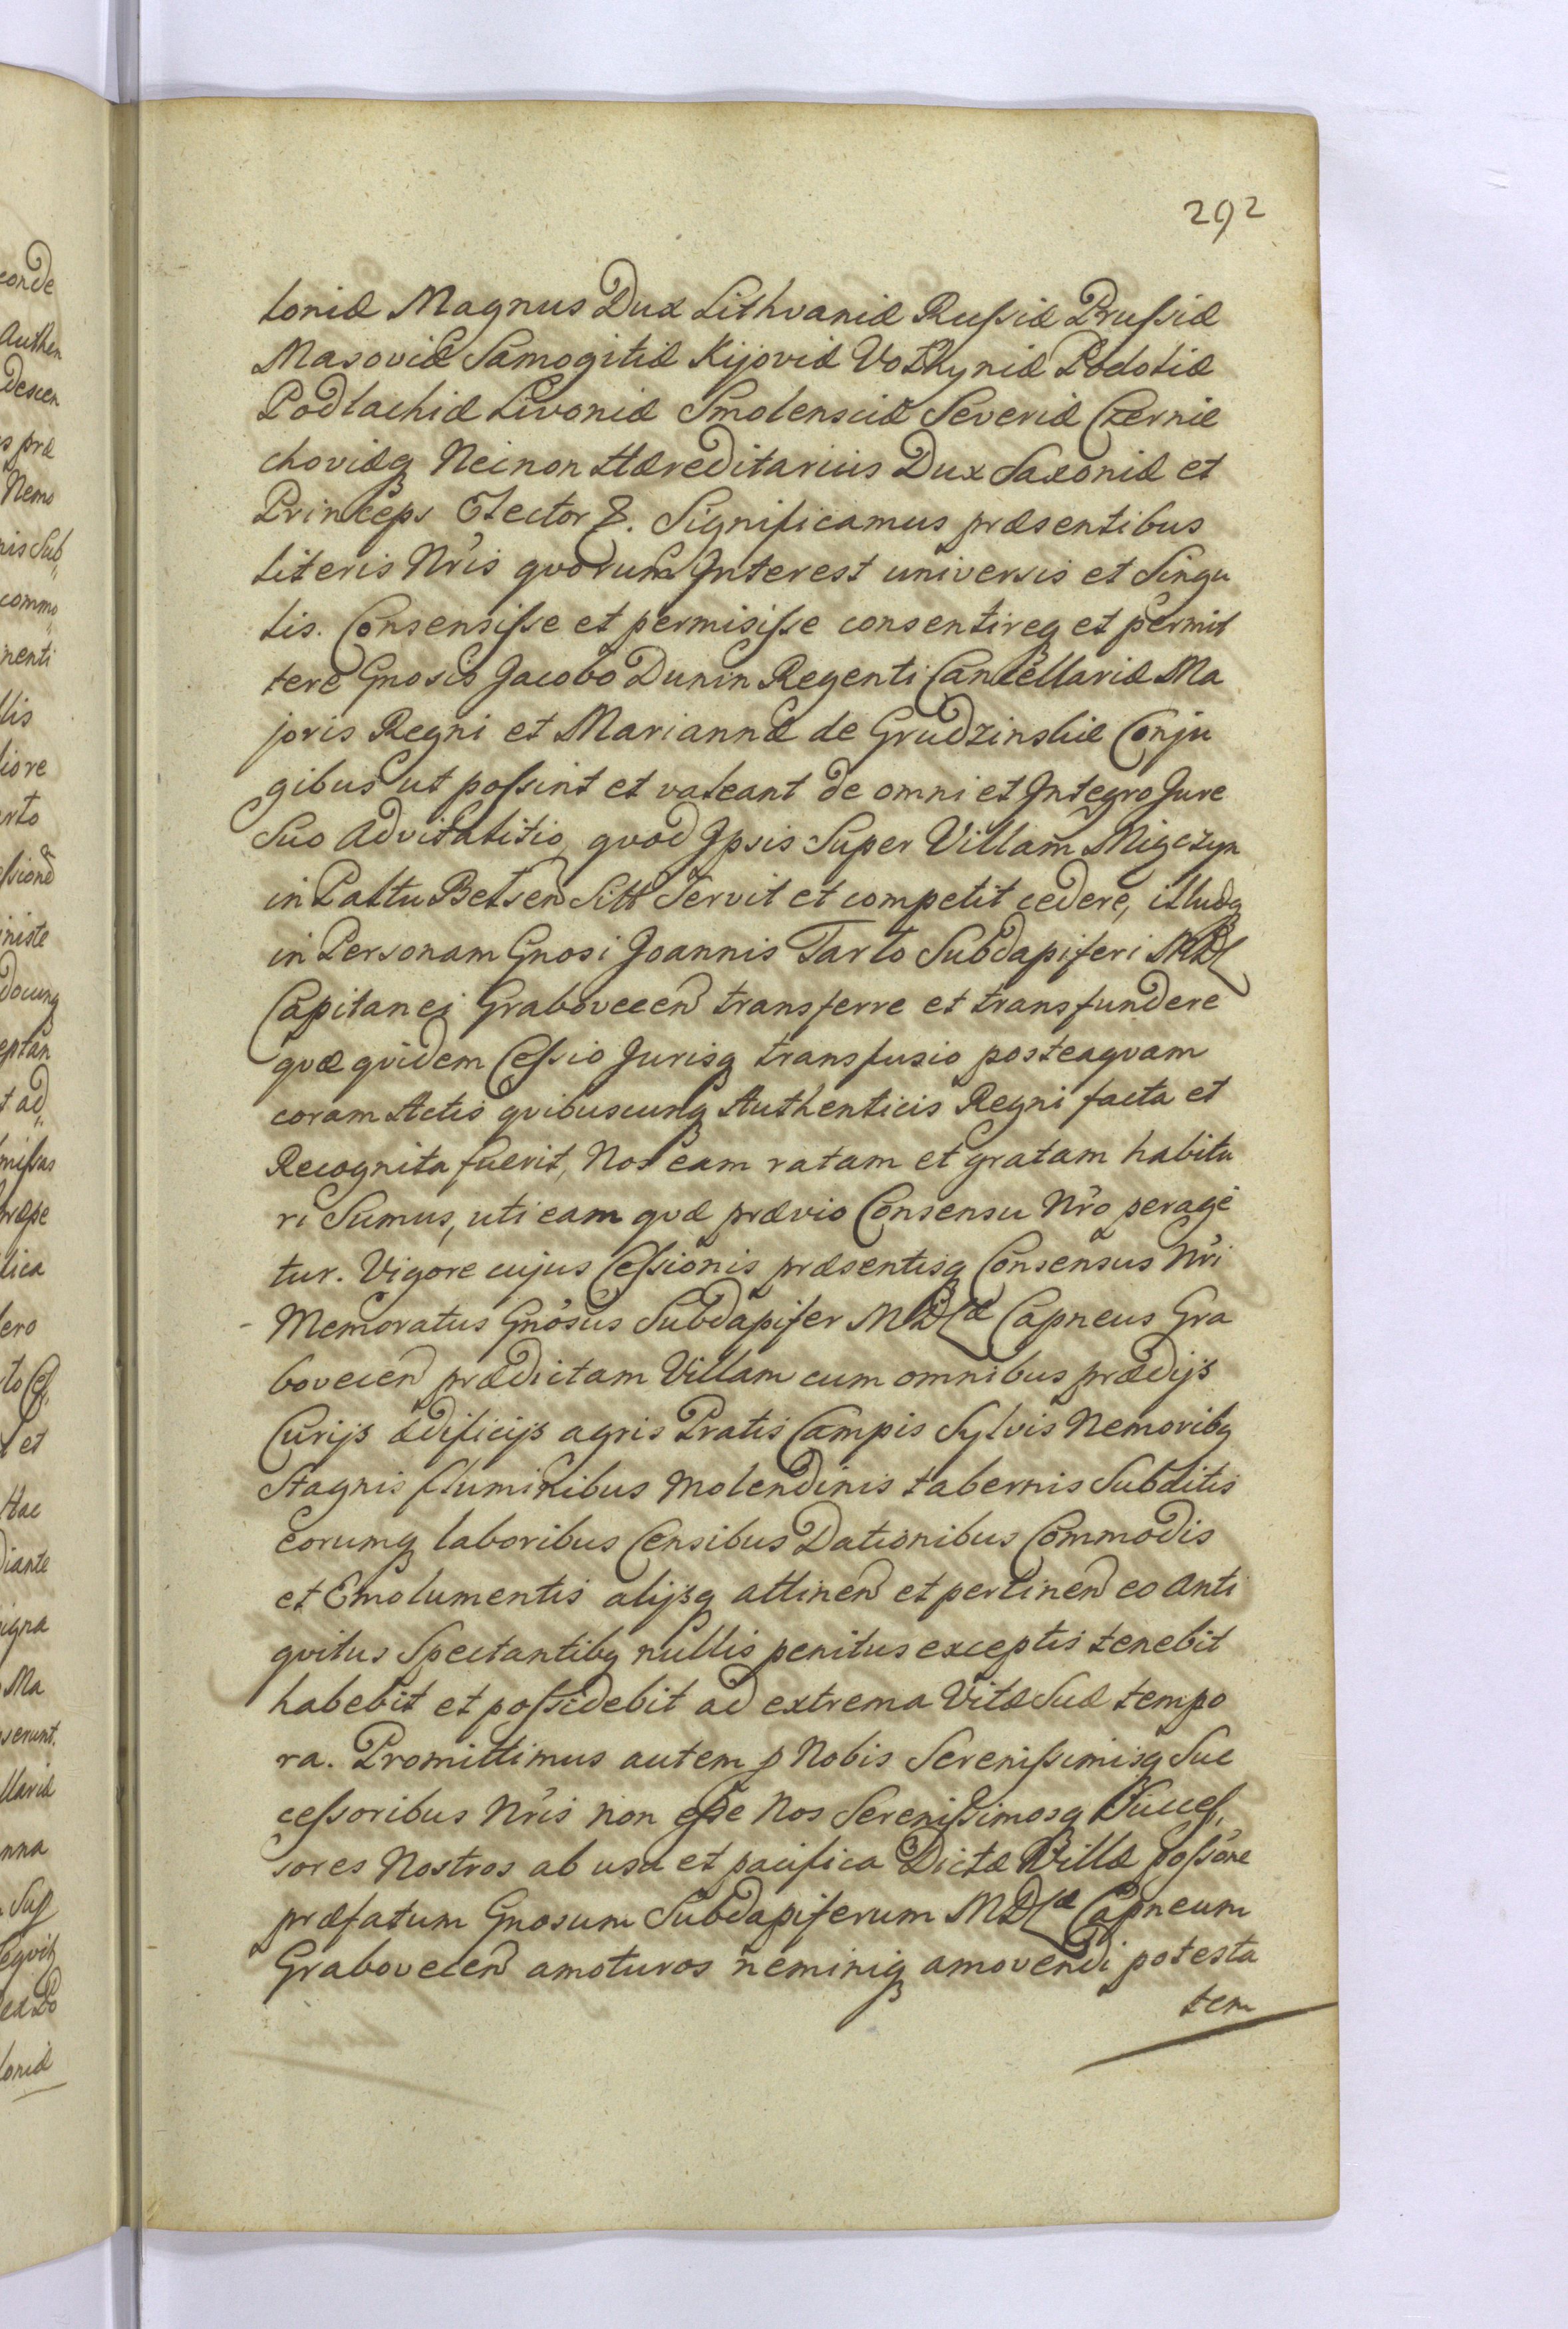 292
loniæ Magnus Dux Lithvaniæ Rußiæ Prußiæ
Masoviæ Samogitiæ Kijoviæ Volhyniæ Podoliæ
Podlachiæ Livoniæ Smolensciæ Severiæ Czernie
choviæq Necnon Hæreditarius Dux Saxoniæ et
Princeps Elector &. Significamus præsentibus
literis Nris qvorum Interest universis et Singu
lis. Consensiße et permisiße consentireq et permit
tere Gnosis Jacobo Dunin Regenti Cancellariæ Ma
joris Regni et Mariannæ de Grudzinskie Conju
gibus ut poßint et valeant de omni et Integro Jure
Suo Advitalitio, qvod Ipsis Super Villam Migczyn
in Pallu Belsen Sitt Servit et competit cedere, illudq
in Personam Gnosi Joannis Tarlo Subdapiferi MDL
Capitanei Grabovecen transferre et transfundere
qvæ qvidem Ceßio Jurisq transfusio posteaqvam
coram Actis qvibuscunq Authenticis Regni facta et
Recognita fuerit, Nos eam ratam et gratam habitu
ri Sumus, uti eam qvæ prævio Consensu Nro perage
tur. Vigore cujus Ceßionis præsentisq Consensus Nri
Memoratus Gnosus Subdapifer MDLæ Capneus Gra
bovecen prædictam Villam cum omnibus prædijs
Curijs ædificijs agris Pratis Campis Sylvis Nemoribq
Stagnis fluminibus Molendinis tabernis Subditis
eorumq laboribus Censibus Dationibus Commodis
et Emolumentis alijsq attinen et pertinen eo Anti
qvitus Spectantibq nullis penitus exceptis tenebit
habebit et poßidebit ad extrema Vitæ Suæ tempo
ra. Promittimus autem p Nobis Serenißimisq Suc
ceßoribus Nris non eße Nos Serenißimosq Succeß,
sores Nostros ab usu et pacifica Dictæ Villæ poßone
præfatum Gnosum Subdapiferum MDLæ Capneum
Grabovecen amoturos neminiq amovendi potesta
tem